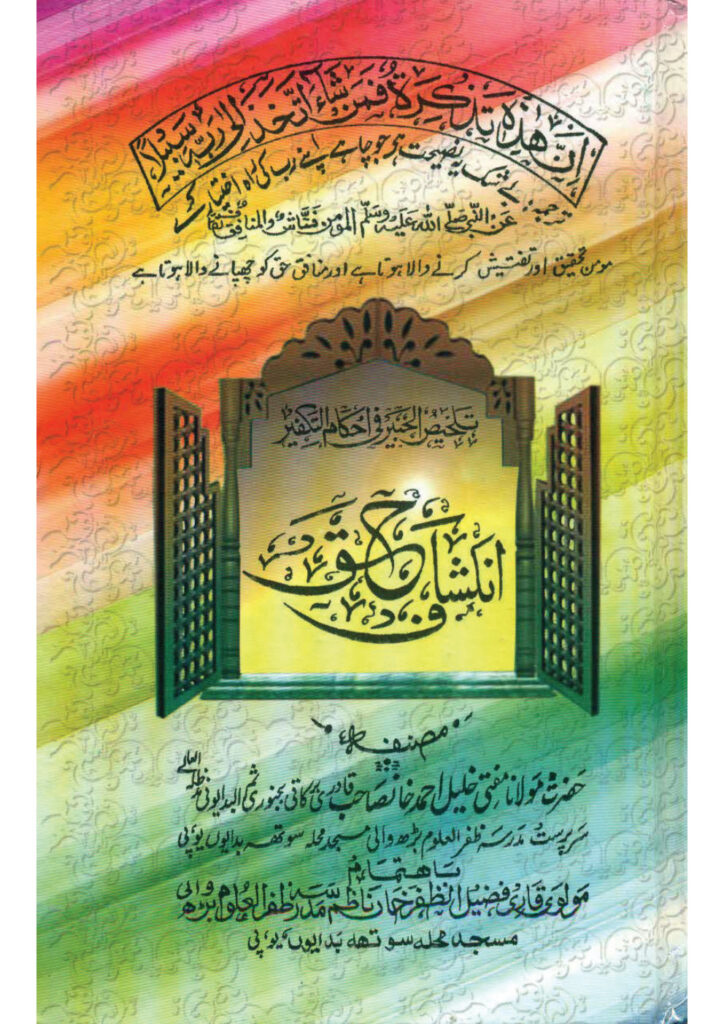 اِنَّ هٰذِهٖ تَذْكِرَةٌ فَمَنْ شَآءَ اتَّخَذَ اِلٰی رَبِّهٖ سَبِيْلًا
ترجمہ: بے شک یہ نصیحت ہو جو چاہے اپنے رب کی راہ اختیار کرے
عَنِ النَّبِیِّ صَلَّی اللّٰہُ عَلَیْہِ وَسَلَّمَ المؤمن فَتَّاش والمنافق
مومن تحقیق اور تفتیش کرنے والا ہوتا ہے اور منافق حق کو چھپانے والا ہوتا ہے
تلخیص الخبیر فی احکام التکفیر
انکشاف حق
مصنفہ
حضرت مولانا مفتی خلیل احمد خانصاحب قادری برکاتی بجنوری ثم البدایونی مدظلہ العالی
سرپرست مدرسہ ظفر العلوم بڑھ والی مسجد محلہ سوتھہ بدایوں یوپی
باهتمام
مولوی قاری فضیل الظفر خان ناظم مدرسہ ظفر العلوم بڑھ والی
مسجد محلہ سوتھہ بدایوں، یوپی